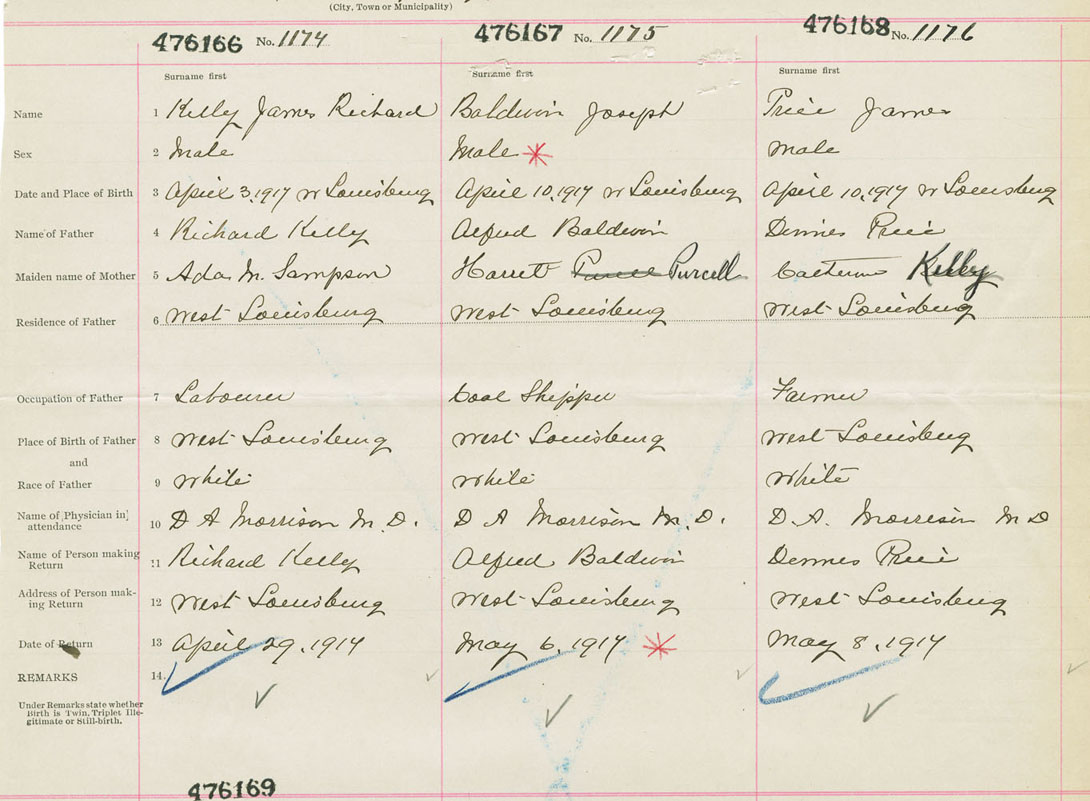 (City, Town or Municipality)
476166 No. 1174 476167 No. 1175 476168 No. 1176
Surname first Surname first Surname first
Name 1 Kelly James Richard Baldwin Joseph Price James
Sex 2 Male Male Male
Date and Place of Birth 3 April 3, 1914 W Louisburg April 10, 1914 W Louisburg April 10, 1914 W Louisburg
Name of Father 4 Richard Kelly Alfred Baldwin Dennis Price
Maiden name of Mother 5 Ada M. Sampson Harrett Purcell Catherine Kelly
Residence of Father 6 West Louisburg West Louisburg West Louisburg
Occupation of Father 7 Labourer Coal Shipper Farmer
Place of Birth of Father 8 West Louisburg West Louisburg West Louisburg
and
Race of Father 9 White White White
Name of Physician in
attendance 10 D A Morrison M. D. D A Morrison M. D. D. A. Morrison M D
Name of Person making
Return 11 Richard Kelly Alfred Baldwin Dennis Price
Address of Person mak-
ing Return 12 West Louisburg West Louisburg West Louisburg
Date of Return 13 April 29, 1914 May 6, 1914 May 8, 1914
REMARKS 14.
Under Remarks state whether
Birth is Twin, Triplet Ille-
gitimate or Still-birth.
476169